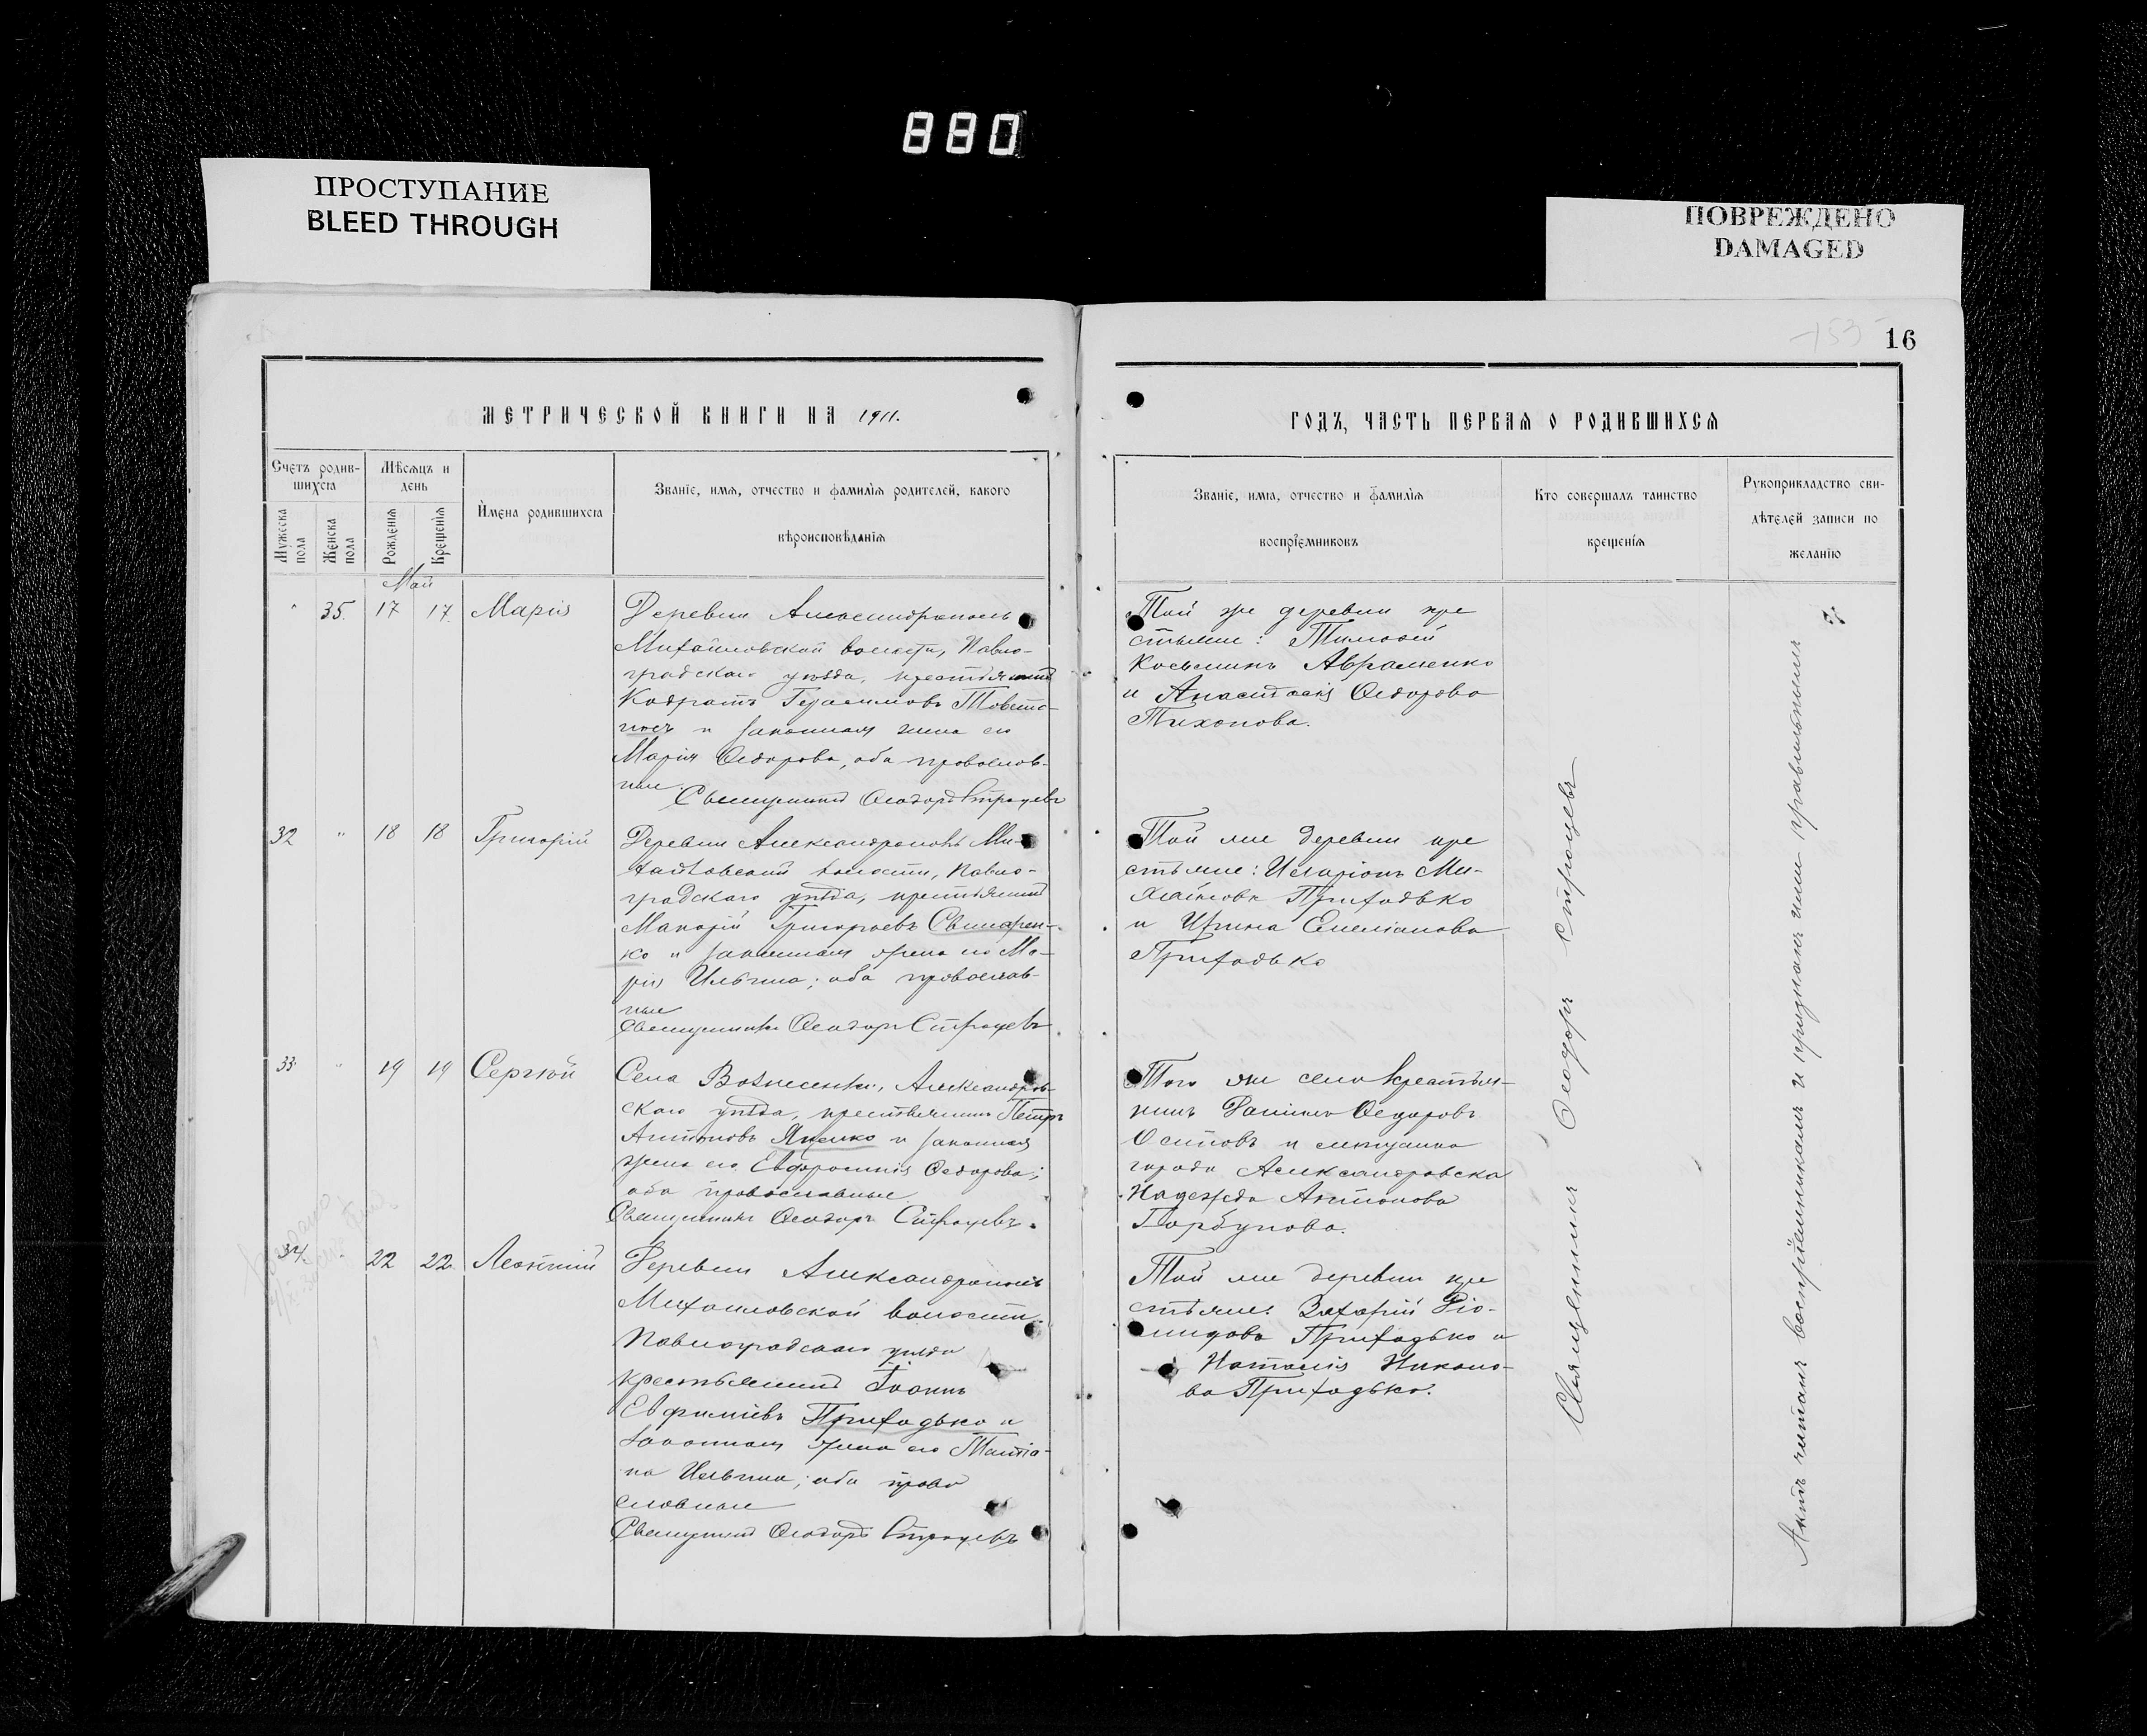 880
ПРОСТУПАНИЕ
BLEED THROUGH
ПОВРЕЖДЕНО
DAMAGED
153
16
МЕТРИЧЕСКОЙ КНИГИ НА 1911.
ГОДЪ, ЧАСТЬ ПЕРВАЯ О РОДИВШИХСЯ
Счетъ родив-
шихся
Мужеска пола
Женска пола
Мѣсяцъ и
день
Рожденія
Крещенія
Имена родившихся
Званіе, имя, отчество и фамилія родителей, какого
вѣроисповѣданія
Званіе, имя, отчество и фамилія
воспріемниковъ
Кто совершалъ таинство
крещенія
Рукоприкладство сви-
дѣтелей записи по
желанію
Май
" 35. 17 17. Марія
Деревни Александрополь
Михайловской волости, Павло-
градскаго уѣзда, крестьянинъ
Кодратъ Герасимовъ Товсто-
носъ и законная жена его
Марія Ѳедорова, оба православ-
ные.
Священникъ Ѳеодоръ Строцевъ
Той же деревни кре
стьяне: Тимоѳей
Косьминъ Авраменко
и Анастасія Ѳедорова
Тихонова.
32 " 18 18 Григорій
Деревни Александрополь Ми-
хайловской волости, Павло-
градскаго уѣзда, крестьянинъ
Макарій Григорьевъ Свинарен-
ко и законная жена его Ма-
рія Ильина; оба православ-
ные
Священникъ Ѳеодоръ Строцевъ
Той же деревни кре
стьяне: Иларіонъ Ми-
хайловъ Приходько
и Ирина Емеліанова
Приходько
33 " 19 19 Сергій
Села Вознесенки, Александров-
скаго уѣзда, крестьянинъ Петръ
Антоновъ Яценко и законная
жена его Евфросинія Ѳедорова;
оба православные.
Священникъ Ѳеодоръ Строцевъ.
Того же села крестья-
нинъ Даніилъ Ѳедоровъ
Осиповъ и мѣщанка
города Александровска
Надежда Антонова
Горбунова.
34. " 22 22. Леонтій
Деревни Александрополь
Михайловской волости
Павлоградскаго уѣзда
крестьянинъ Іоаннъ
Евфиміевъ Приходько и
законная жена его Татіа-
на Ильина; оба право
славные
Священникъ Ѳеодоръ Строцевъ
Той же деревни кре
стьяне: Захарій Діо-
мидовъ Приходько и
Наталія Никоно-
ва Приходько.
Священникъ Ѳеодоръ Строцевъ
Актъ читалъ воспріемникамъ и признанъ ими правильнымъ